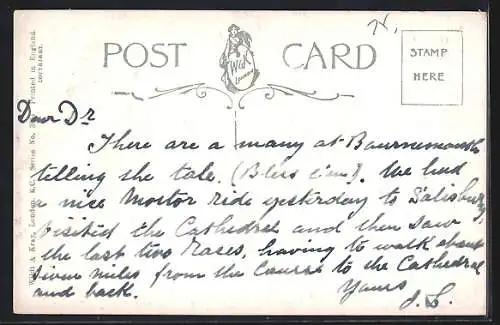 POST CARD
W&K
London
STAMP
HERE
Wildt & Kray, London, E.C. Series No.
Printed in England.
COPYRIGHT.
Dear Dr
There are a many at Bournemouth
telling the tale. (Bless 'em). We had
a nice Mortor ride yesterday to Salisbury,
visited the Cathedral and then saw
the last two Races, having to walk about
seven miles from the Course to the Cathedral
and back.
Yours
J. S.